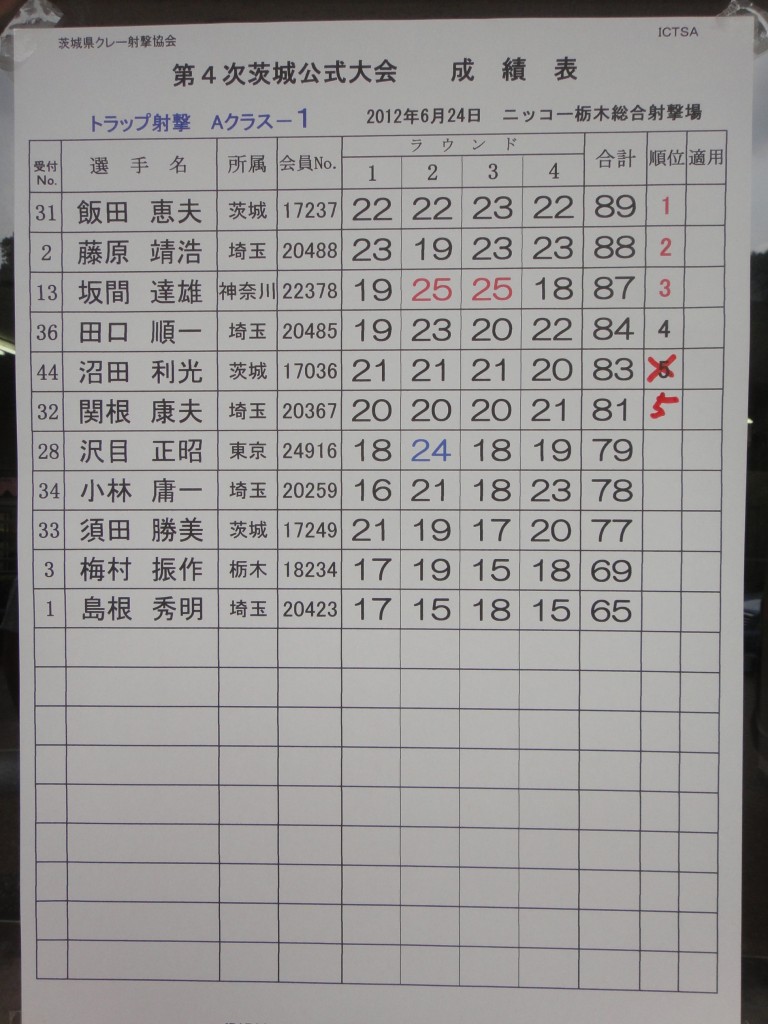 茨城県クレー射撃協会 ICTSA
第4次茨城公式大会 成績表
トラップ射撃 Aクラス－1 2012年6月24日 ニッコー栃木総合射撃場
受付No. 選手名 所属 会員No. ラウンド 1 2 3 4 合計 順位 適用
31 飯田 恵夫 茨城 17237 22 22 23 22 89 1
2 藤原 靖浩 埼玉 20488 23 19 23 23 88 2
13 坂間 達雄 神奈川 22378 19 25 25 18 87 3
36 田口 順一 埼玉 20485 19 23 20 22 84 4
44 沼田 利光 茨城 17036 21 21 21 20 83 5
32 関根 康夫 埼玉 20367 20 20 20 21 81 5
28 沢目 正昭 東京 24916 18 24 18 19 79
34 小林 庸一 埼玉 20259 16 21 18 23 78
33 須田 勝美 茨城 17249 21 19 17 20 77
3 梅村 振作 栃木 18234 17 19 15 18 69
1 島根 秀明 埼玉 20423 17 15 18 15 65